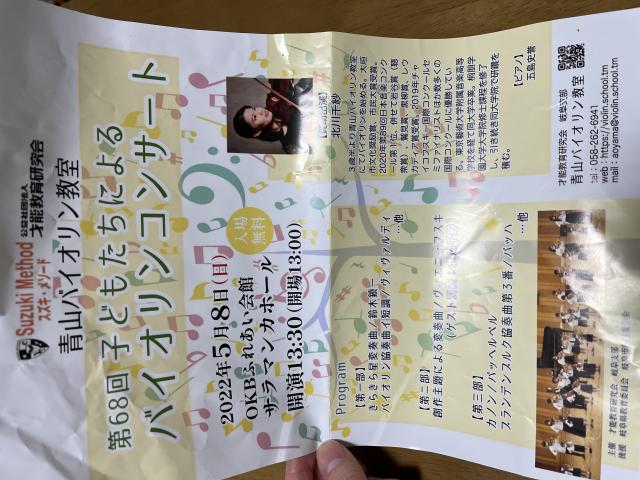 Suzuki Method
スズキ・メソード
公益社団法人
才能教育研究会
青山バイオリン教室
第68回 子どもたちによる
バイオリンコンサート
2022年5月8日(日)
OKBふれあい会館
サラマンカホール
開演13:30(開場13:00)
入場
無料
【賛助出演】
北川千紗
3歳半より青山バイオリン教室
にてバイオリンを始める。大垣
市文化奨励賞、市民大賞受賞。
2020年第89回日本音楽コンク
ール第1位、併せて岩谷賞(聴
衆賞)、鷲見賞、黒柳賞、レウ
カディア賞受賞。2019年チャ
イコフスキー国際コンクールセ
ミファイナリストほか数多くの
国際コンクールに優勝してい
る。東京藝術大学附属音楽高等
学校を経て同大学卒業。桐朋学
園大学大学院修士課程を修了
し、引き続き同大学院で研鑽を
積む。
【ピアノ】
五島史誉
Program
【第一部】
きらきら星変奏曲/鈴木鎮一
バイオリン協奏曲イ短調/ヴィヴァルディ
…他
【第二部】
創作主題による変奏曲/ヴィエニアフスキ
【第三部】
カノン/パッヘルベル
ブランデンブルク協奏曲第3番/バッハ
…他
才能教育研究会 岐阜支部
青山バイオリン教室
tel : 058-262-6941
web : https://violin.school.tm
mail : aoyama@violin.school.tm
主催 才能教育研究会 岐阜支部
後援 岐阜県教育委員会